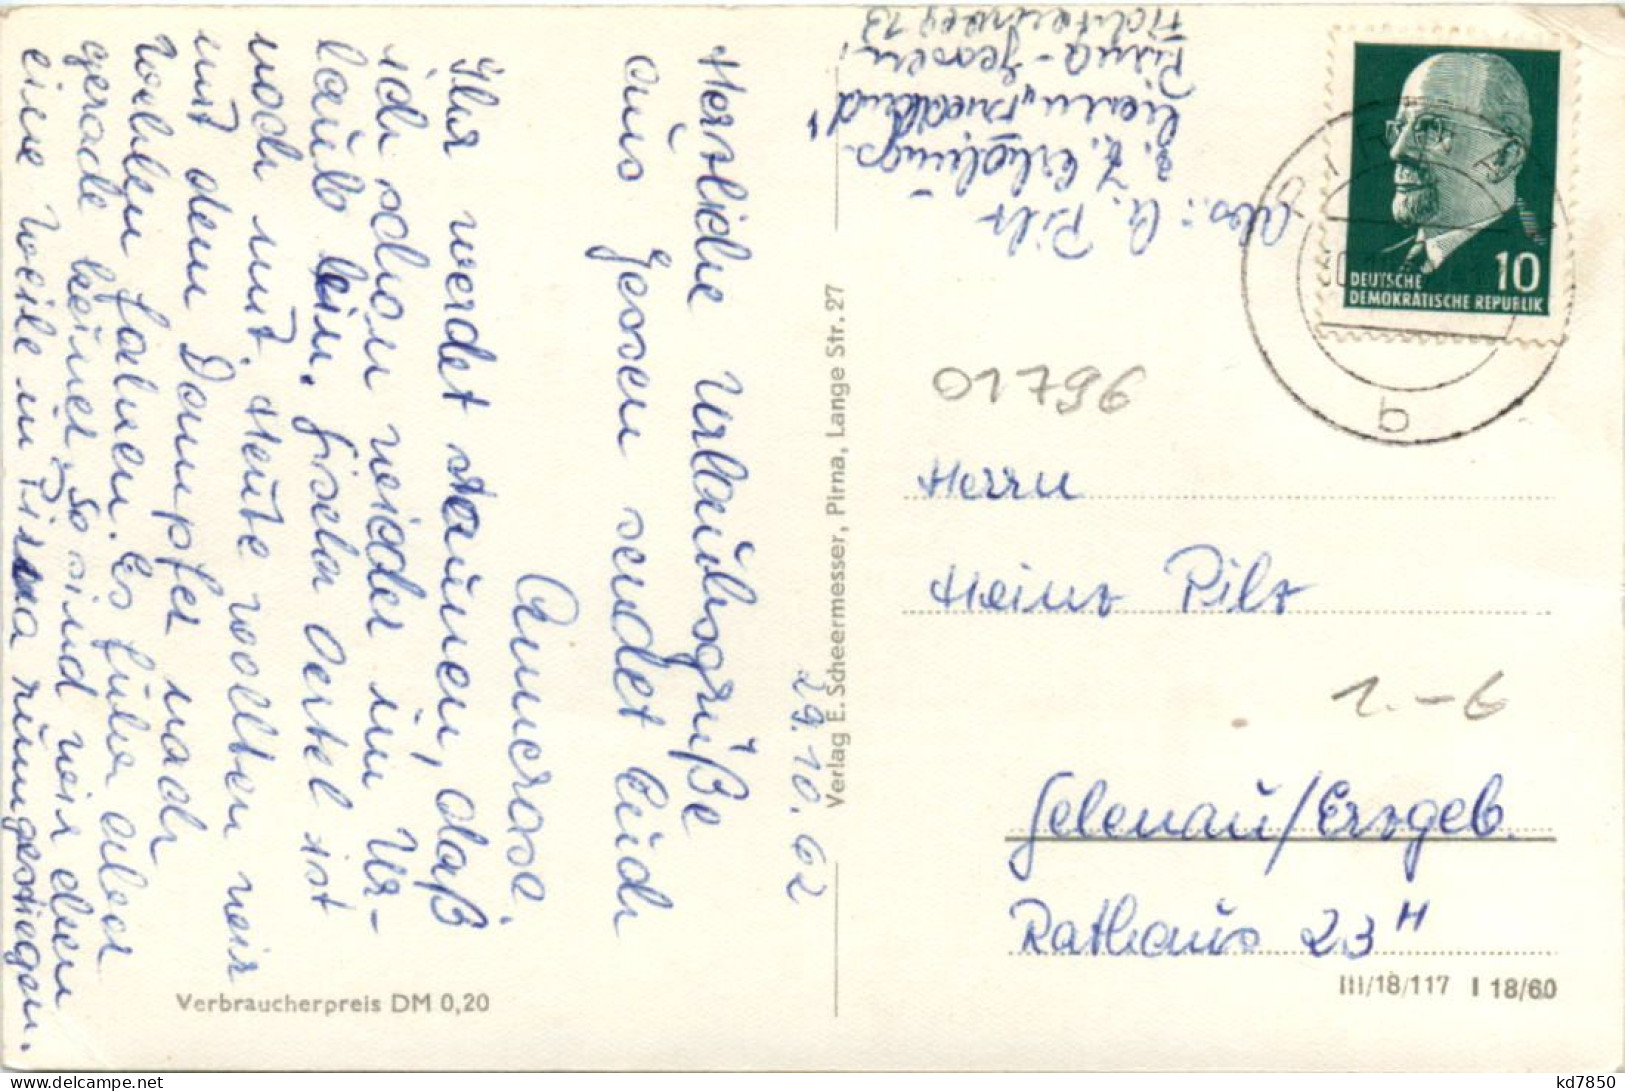 29.10.62
Herzliche Urlaubsgrüße
aus Jessen sendet Euch
Annerose.
Ihr werdet staunen, daß
ich schon wieder im Ur-
laub bin. Gisela Oertel ist
noch mit. Heute wollten wir
mit dem Dampfer nach
Wehlen fahren. Es fuhr aber
gerade keiner. So sind wir eben
eine Weile in Pirna rumgestiegen.
Verbraucherpreis DM 0,20
Verlag E. Scheermesser, Pirna, Lange Str. 27
Abs.: A. Pilz
z. Z. Erholungs-
heim „Friedland"
Pirna-Jessen,
13
PIRNA
b
10
DEUTSCHE
DEMOKRATISCHE REPUBLIK
01796
Herrn
Heinz Pilz
1.-6
Gelenau/Erzgeb.
Rathaus 23H
III/18/117 I 18/60
kd7850